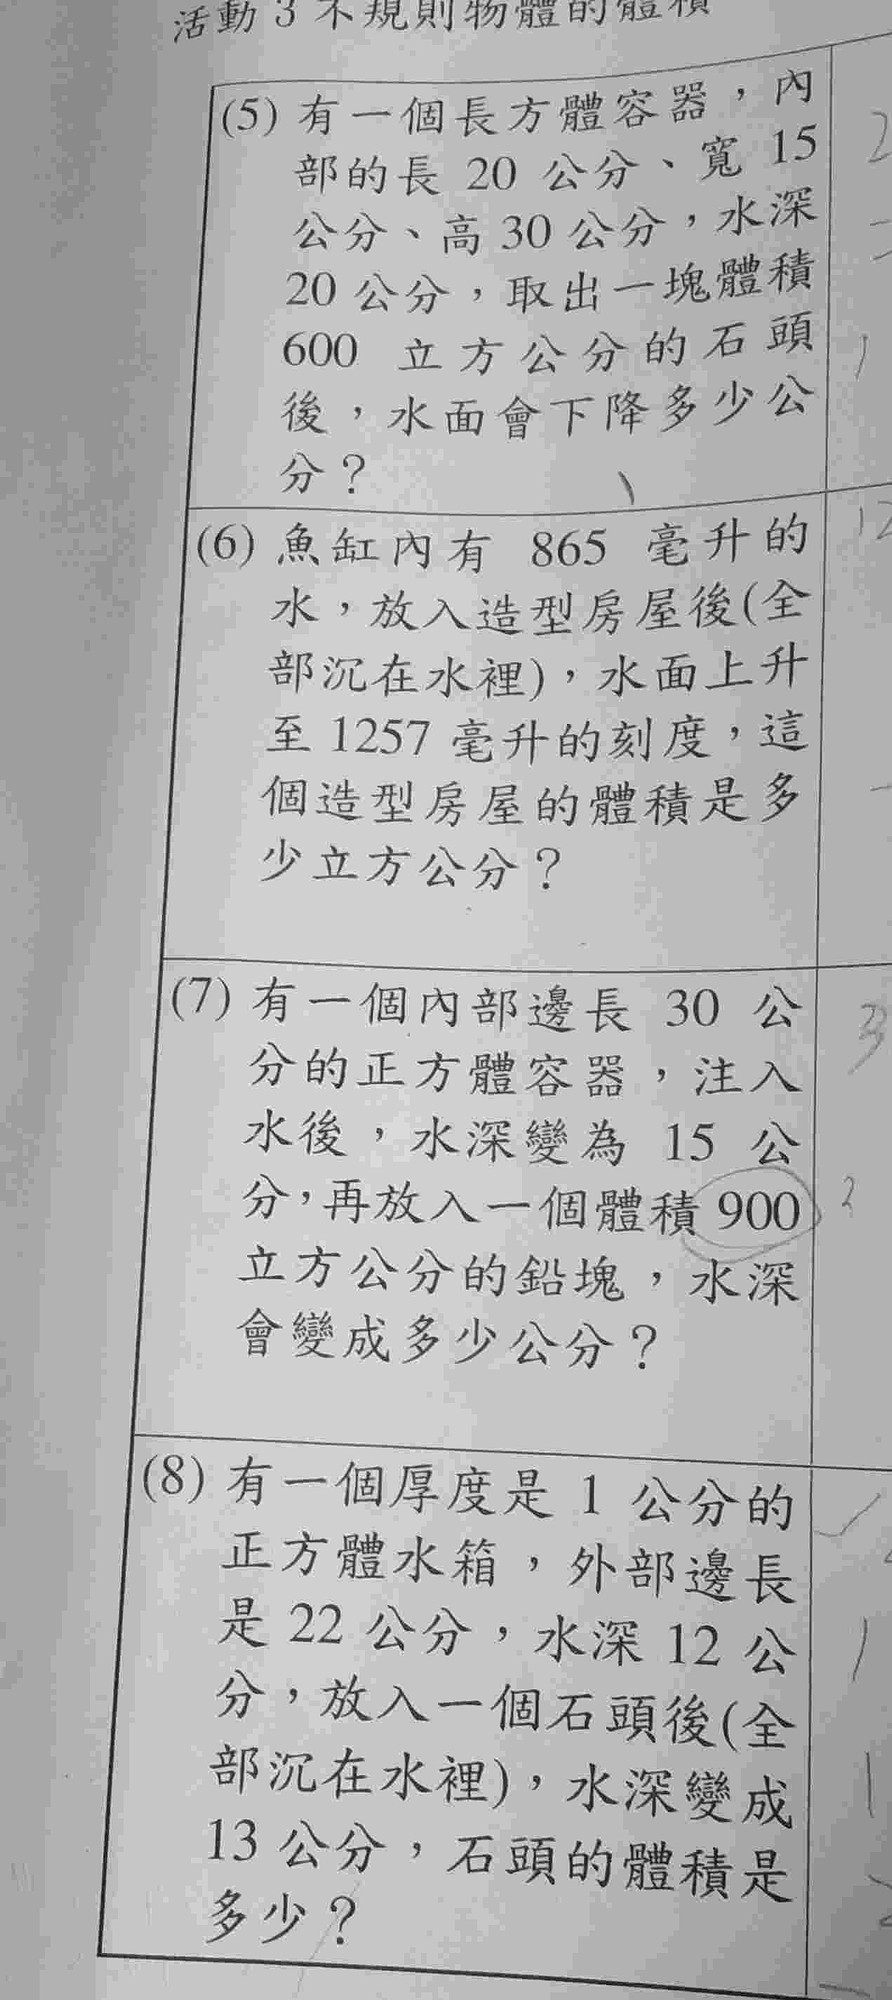 活動 3 不規則物體的體積
(5) 有一個長方體容器，內
部的長 20 公分、寬 15
公分、高 30 公分，水深
20 公分，取出一塊體積
600 立方公分的石頭
後，水面會下降多少公
分？
(6) 魚缸內有 865 毫升的
水，放入造型房屋後(全
部沉在水裡)，水面上升
至 1257 毫升的刻度，這
個造型房屋的體積是多
少立方公分？
(7) 有一個內部邊長 30 公
分的正方體容器，注入
水後，水深變為 15 公
分，再放入一個體積 900
立方公分的鉛塊，水深
會變成多少公分？
(8) 有一個厚度是 1 公分的
正方體水箱，外部邊長
是 22 公分，水深 12 公
分，放入一個石頭後(全
部沉在水裡)，水深變成
13 公分，石頭的體積是
多少？